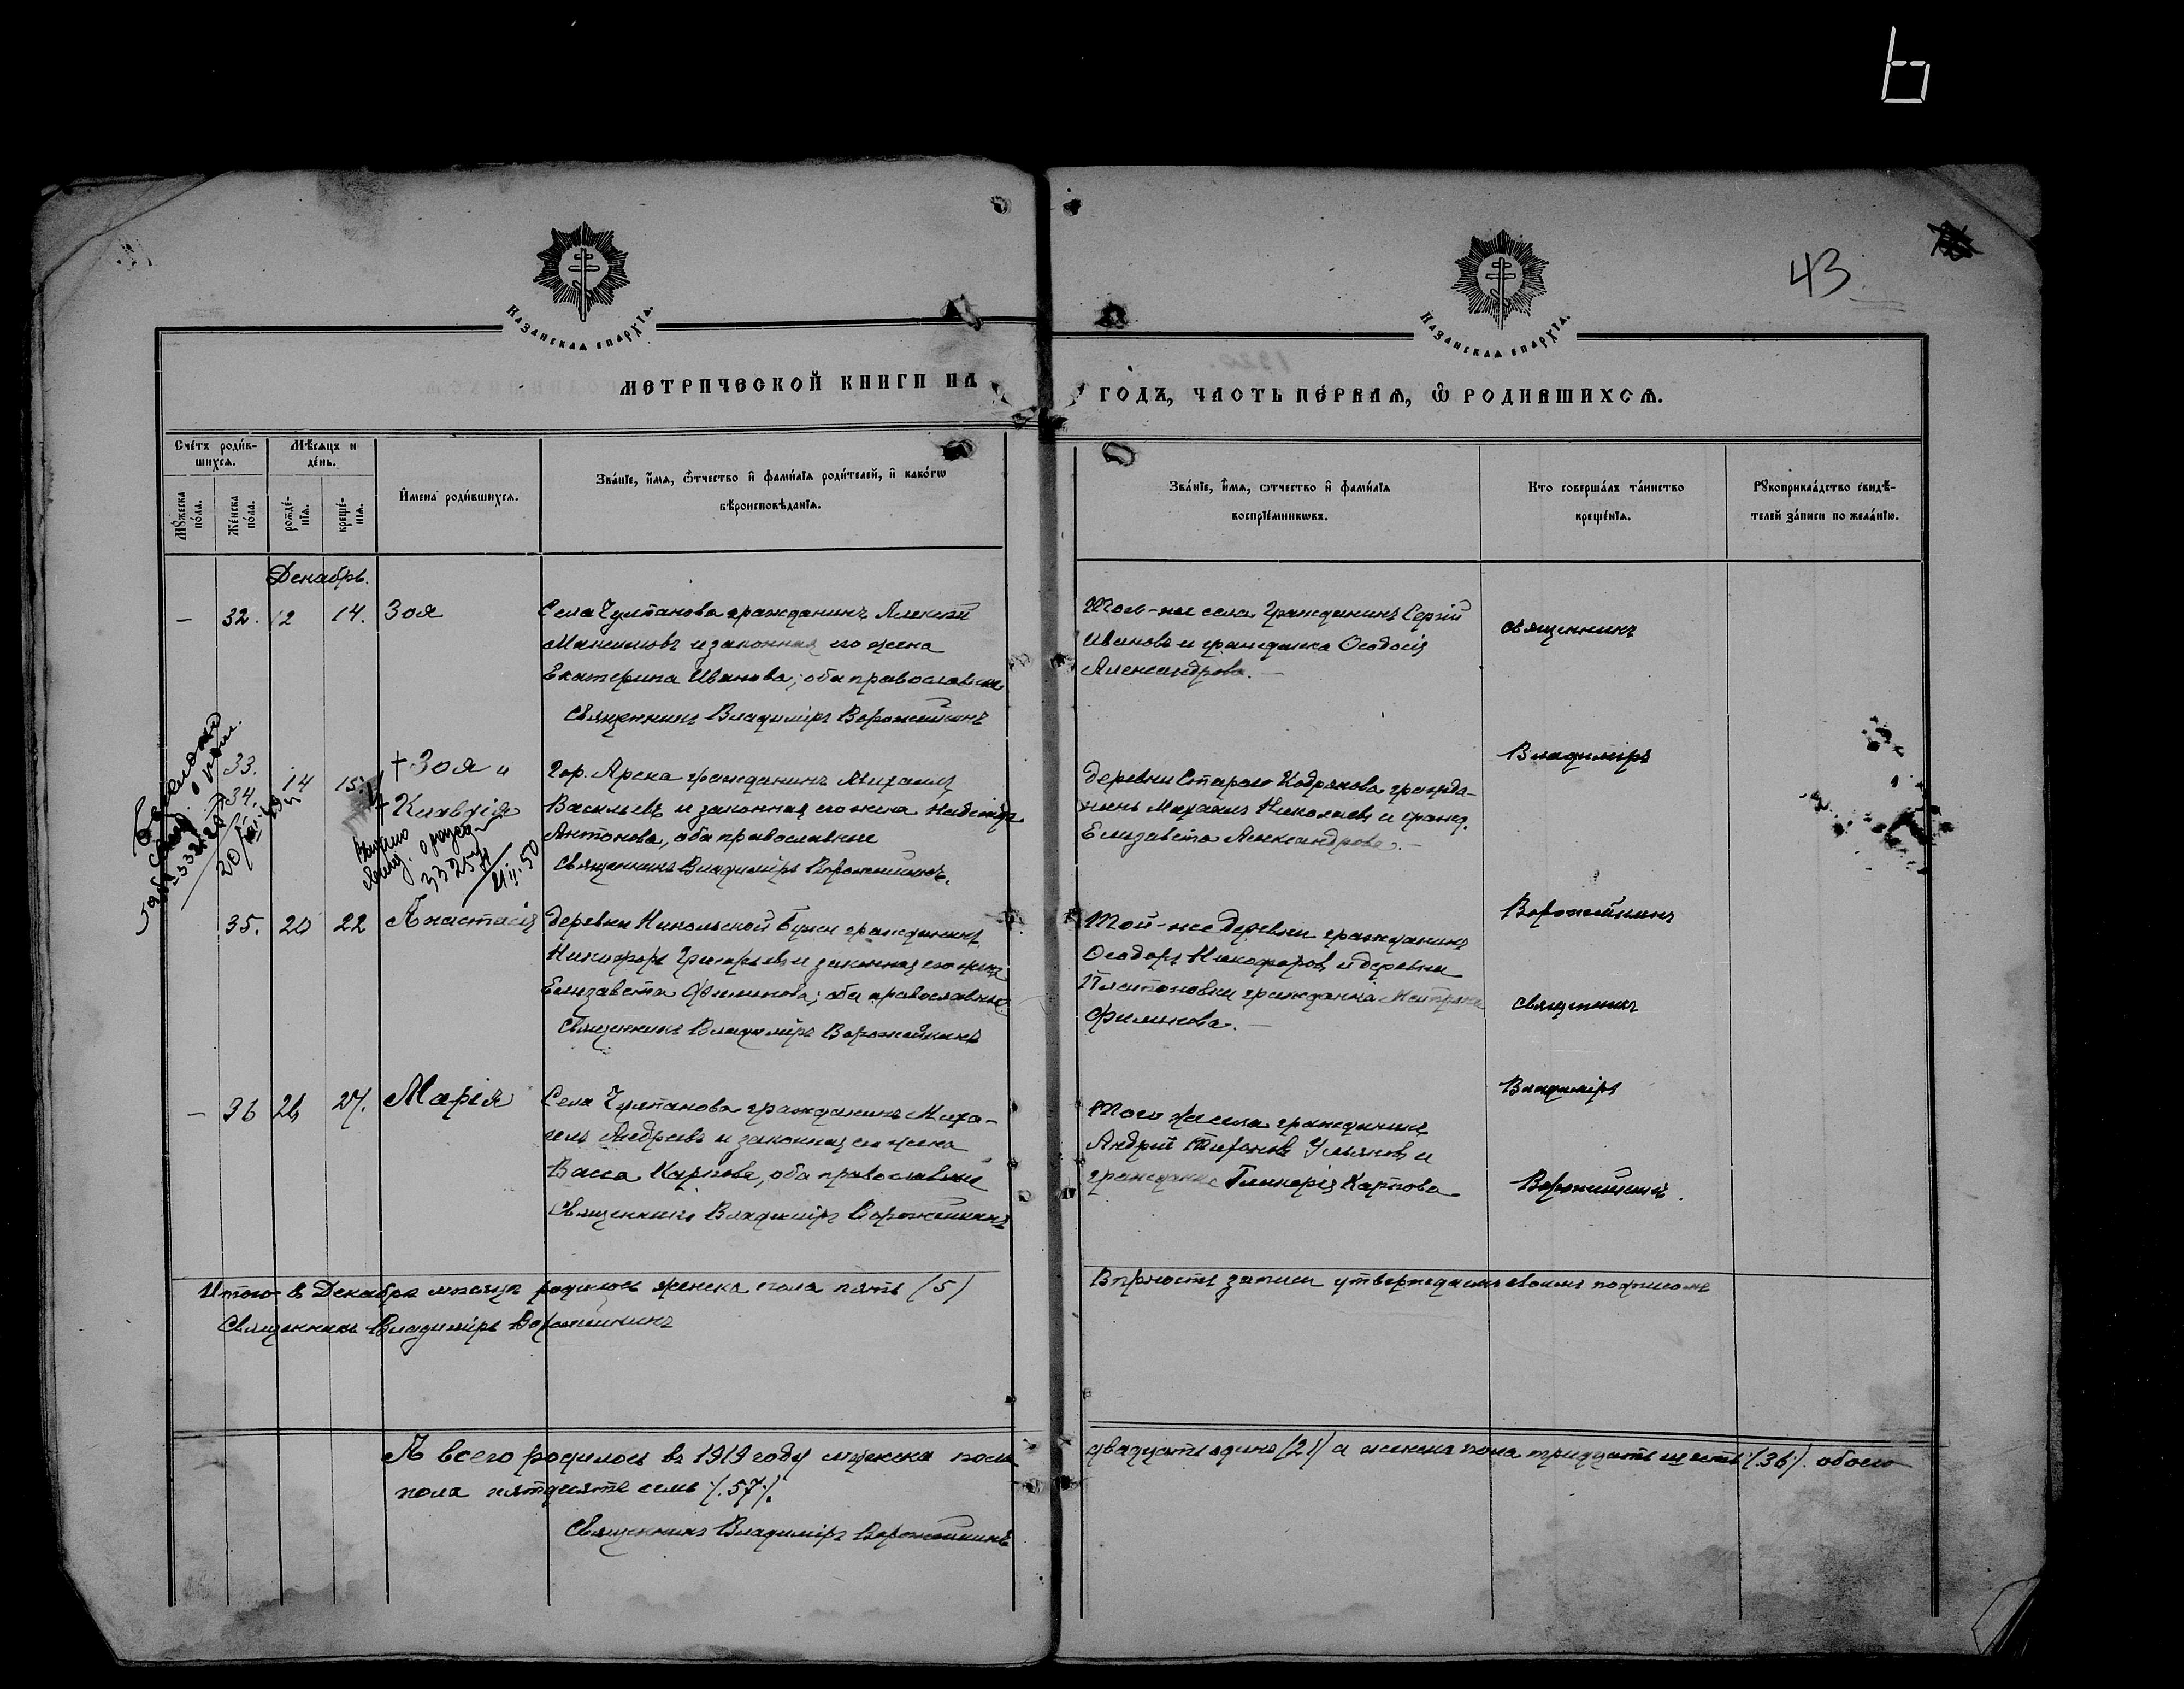 43
Казанская епархїа.
Казанская епархїа.
МЕТРИЧЕСКОЙ КНИГИ НА
ГОДЪ, ЧАСТЬ ПЕ́РВАЯ, Ѽ РОДИВШИХСЯ.
Сче́тъ роди́в-
шихся.
Мѣ́сяцъ и
де́нь.
Мꙋ́жеска
по́ла.
Же́нска
по́ла.
рожде́-
нїя.
креще́-
нїя.
И҆мена̀ роди́вшихся.
Зва́нїе, и҆́мя, ѿтчество и҆ фами́лїя роди́телей, и҆ како́гѡ
вѣроисповѣ́данїя.
Зва́нїе, и҆́мя, ѻтчество и҆ фами́лїя
воспрїе́мникѡвъ.
Кто соверша́лъ та́инство
креще́нїя.
Рꙋкоприкла́дство свидѣ́-
телей за́писи по жела́нїю.
Декабрь.
— 32. 12 14. Зоя
Села Чулпанова гражданинъ Алексѣй
Максимовъ и законная его жена
Екатерина Иванова; оба православные
Священникъ Владиміръ Ворожейкинъ
Того-же села гражданинъ Сергій
Ивановъ и гражданка Ѳеодосія
Александрова. —
священникъ
33.
34. 14 15.
+ Зоя и
+ Клавдія
Гор. Арска гражданинъ Михаилъ
Васильевъ и законная его жена Надежда
Антонова, оба православные
Священникъ Владиміръ Ворожейкинъ.
деревни Стараго Кадрякова гражда-
нинъ Михаилъ Николаевъ и гражд.
Елизавета Александрова. —
Владиміръ
33257
21.II.50
35. 20 22 Анастасія
деревни Никольской гражданинъ
Никифоръ Григорьевъ и законная его жена
Елизавета Филипова; оба православные
Священникъ Владиміръ Ворожейкинъ
Той-же деревни гражданинъ
Ѳеодоръ Никифоровъ и деревни
Платоновки гражданка
Филипова. —
Ворожейкинъ
священникъ
— 36 26 27. Марія
Села Чулпанова гражданинъ Миха-
илъ Андреевъ и законная его жена
Васса Карпова, оба православные
Священникъ Владиміръ Ворожейкинъ
Того же села гражданинъ
Андрей Ульяновъ и
гражданка Гликерія Карпова
Владиміръ
Ворожейкинъ.
Итого въ Декабрѣ мѣсяцѣ родилось женска пола пять (5)
Священникъ Владиміръ Ворожейкинъ
Вѣрность записи утверждаемъ своимъ подписомъ
А всего родилось въ 1919 году мужеска пола
двадцать одинъ (21) а женска пола тридцать шесть (.36.). обоего
пола пятдесятъ семь (.57.).
Священникъ Владиміръ Ворожейкинъ